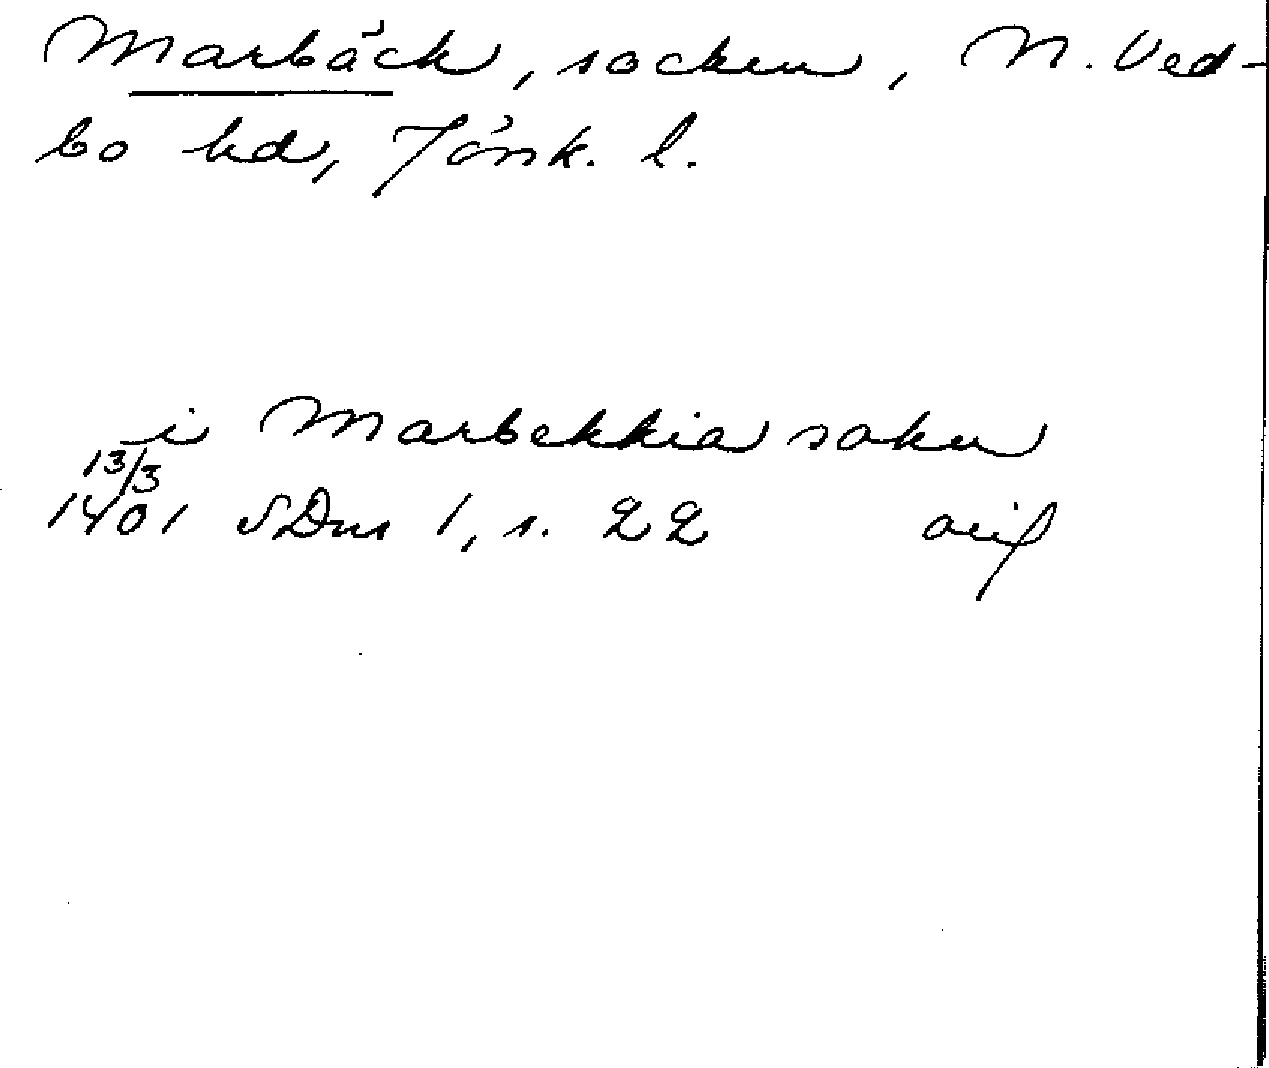 Marbäck, socken, N. Ved-
bo hd, Jönk. l.
i Marbekkia sokn
13/3
1401 SDns 1, s. 22 avs